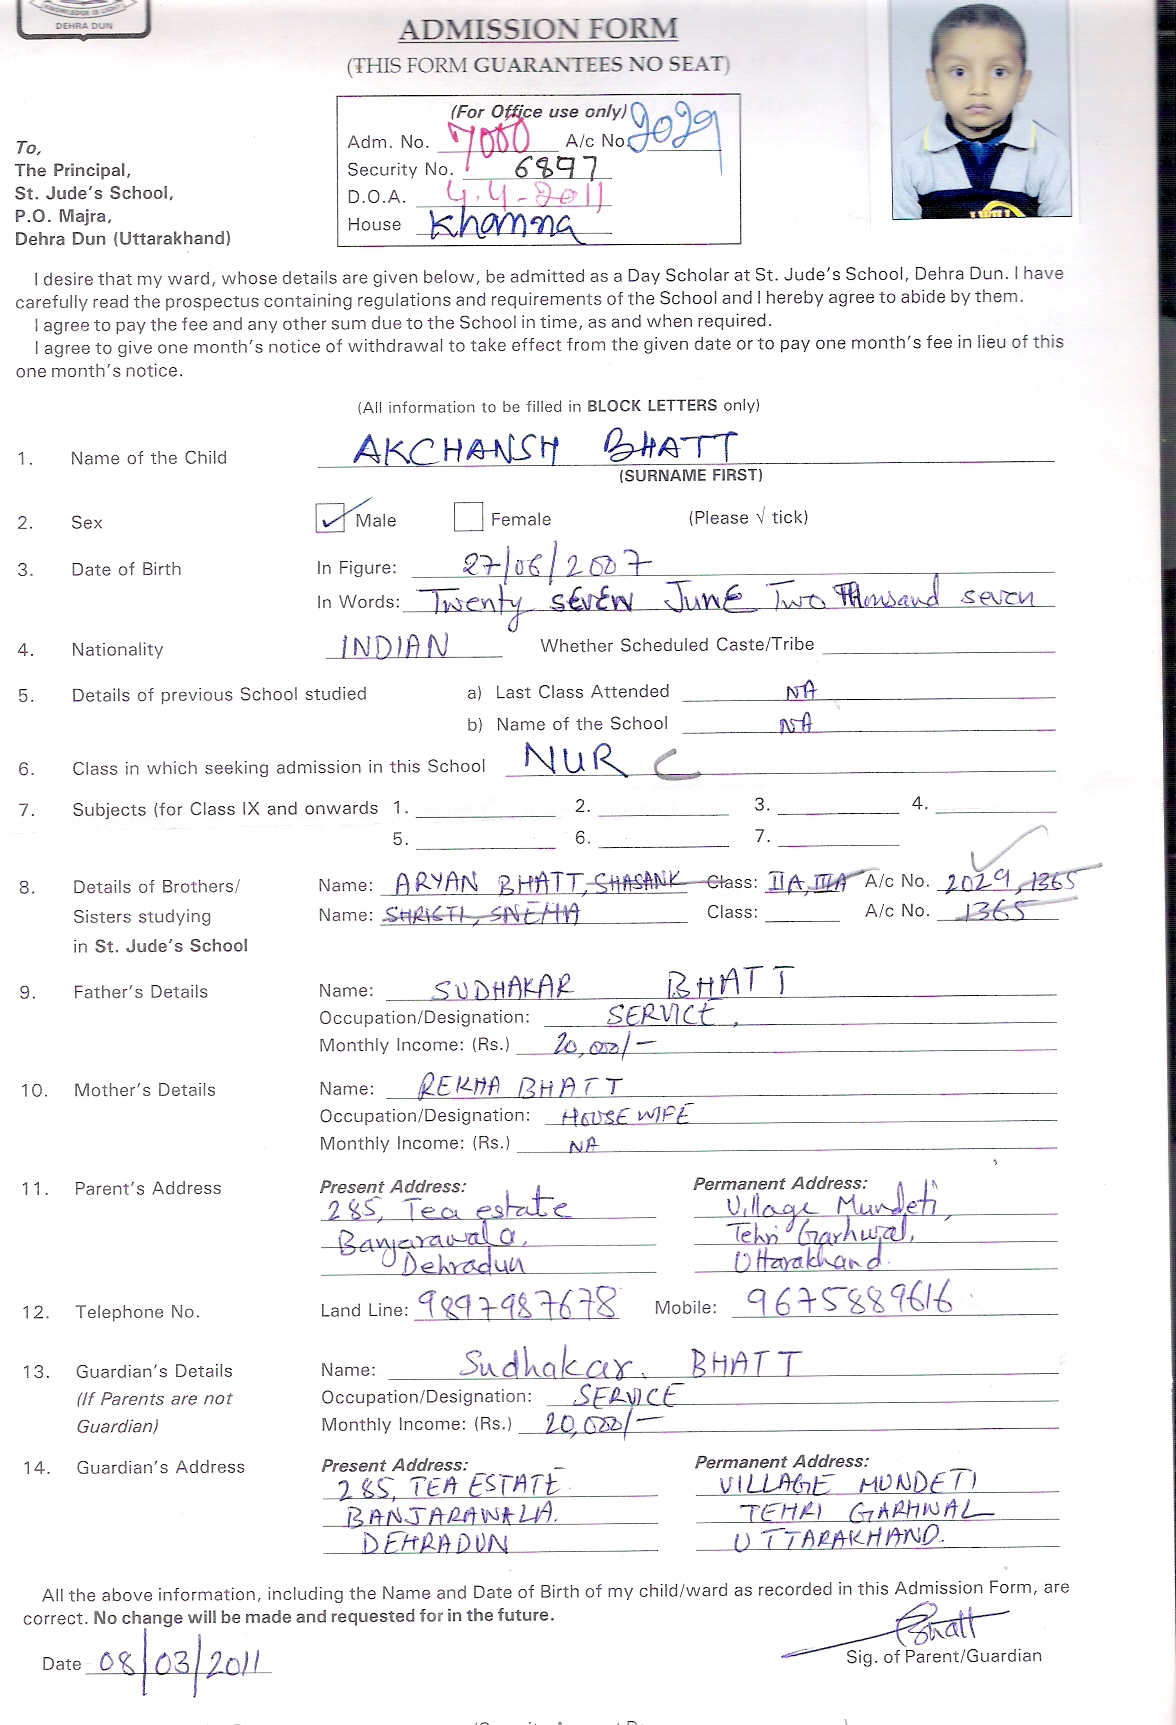 KNOWLEDGE IS LIGHT
DEHRA DUN
ADMISSION FORM
(THIS FORM GUARANTEES NO SEAT)
(For Office use only)
Adm. No. 7000 A/c No. 2029
Security No. 6897
D.O.A. 4.4-2011
House Khanna
To,
The Principal,
St. Jude's School,
P.O. Majra,
Dehra Dun (Uttarakhand)
I desire that my ward, whose details are given below, be admitted as a Day Scholar at St. Jude's School, Dehra Dun. I have
carefully read the prospectus containing regulations and requirements of the School and I hereby agree to abide by them.
I agree to pay the fee and any other sum due to the School in time, as and when required.
I agree to give one month's notice of withdrawal to take effect from the given date or to pay one month's fee in lieu of this
one month's notice.
(All information to be filled in BLOCK LETTERS only)
1. Name of the Child AKCHANSH BHATT
(SURNAME FIRST)
2. Sex ✓ Male Female (Please √ tick)
3. Date of Birth In Figure: 27/06/2007
In Words: Twenty SEVEN JUNE Two Thousand seven
4. Nationality INDIAN Whether Scheduled Caste/Tribe
5. Details of previous School studied a) Last Class Attended NA
b) Name of the School NA
6. Class in which seeking admission in this School NUR C
7. Subjects (for Class IX and onwards 1. 2. 3. 4.
5. 6. 7.
8. Details of Brothers/ Name: ARYAN BHATT, SHASANK Class: IIA, IIIA A/c No. 2029, 1365
Sisters studying Name: SHRISTI, SNEHA Class: A/c No. 1365
in St. Jude's School
9. Father's Details Name: SUDHAKAR BHATT
Occupation/Designation: SERVICE,
Monthly Income: (Rs.) 20,000/-
10. Mother's Details Name: REKHA BHATT
Occupation/Designation: HOUSE WIFE
Monthly Income: (Rs.) NA
11. Parent's Address Present Address: Permanent Address:
285, Tea estate Village Mundeti,
Banjarawala, Tehri Garhwal,
Dehradun Uttarakhand.
12. Telephone No. Land Line: 9897987678 Mobile: 9675889616
13. Guardian's Details Name: Sudhakar. BHATT
(If Parents are not Occupation/Designation: SERVICE
Guardian) Monthly Income: (Rs.) 20,000/-
14. Guardian's Address Present Address: Permanent Address:
285, TEA ESTATE VILLAGE MUNDETI
BANJARAWALA. TEHRI GARHWAL
DEHRADUN UTTARAKHAND.
All the above information, including the Name and Date of Birth of my child/ward as recorded in this Admission Form, are
correct. No change will be made and requested for in the future.
Date 08/03/2011 Bhatt
Sig. of Parent/Guardian